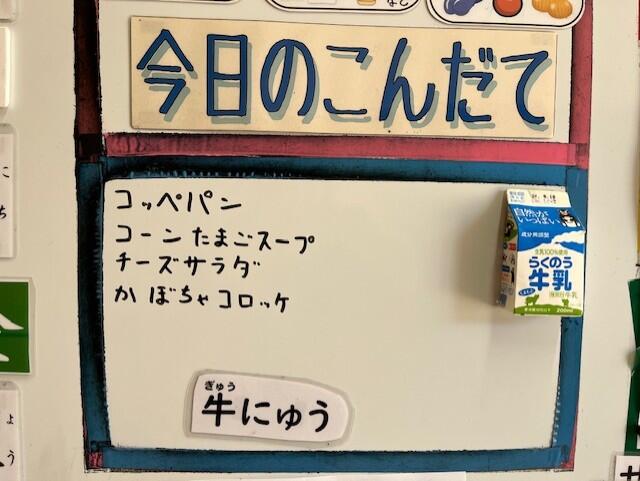 今日のこんだて
コッペパン
コーンたまごスープ
チーズサラダ
かぼちゃコロッケ
自然が
いっぱい
成分無調整
生乳100%使用
らくのう
牛乳
200ml
ぎゅう
牛にゅう